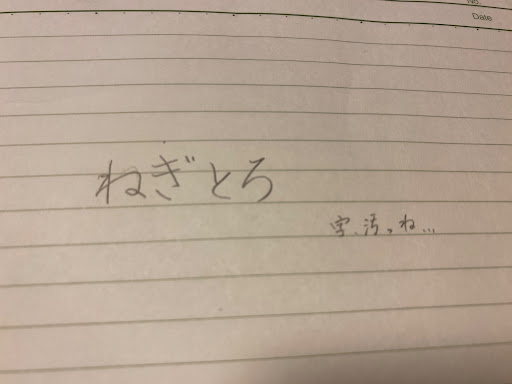 No.
Date
ねぎとろ
字、汚っね...